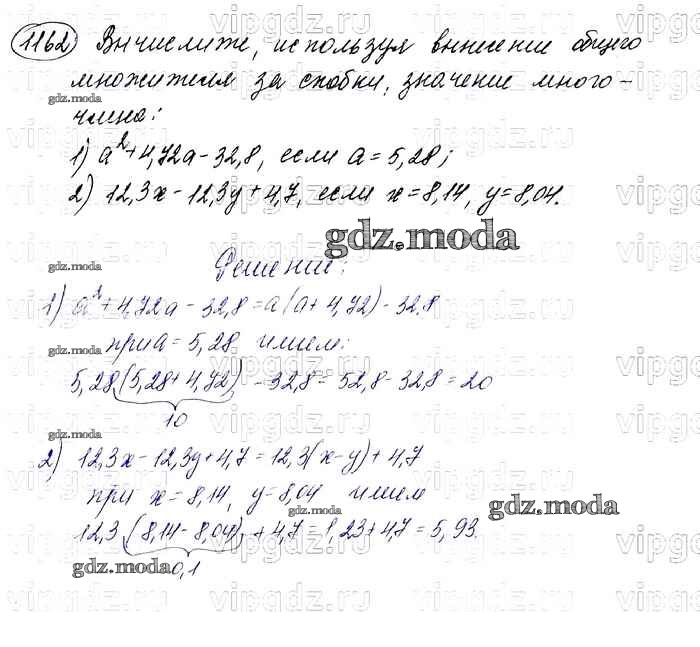 1162 Вычислите, используя вынесение общего
множителя за скобки, значение много-
члена:
1) a²+4,72a-32,8, если a=5,28;
2) 12,3x-12,3y+4,7, если x=8,14, y=8,04.
gdz.moda
Решение:
1) a²+4,72a-32,8=a(a+4,72)-32,8
при a=5,28 имеем:
5,28(5,28+4,72)-32,8=52,8-32,8=20
10
2) 12,3x-12,3y+4,7=12,3(x-y)+4,7
при x=8,14, y=8,04 имеем
gdz.moda
12,3(8,14-8,04)+4,7=1,23+4,7=5,93.
gdz.moda
0,1
vipgdz.ru